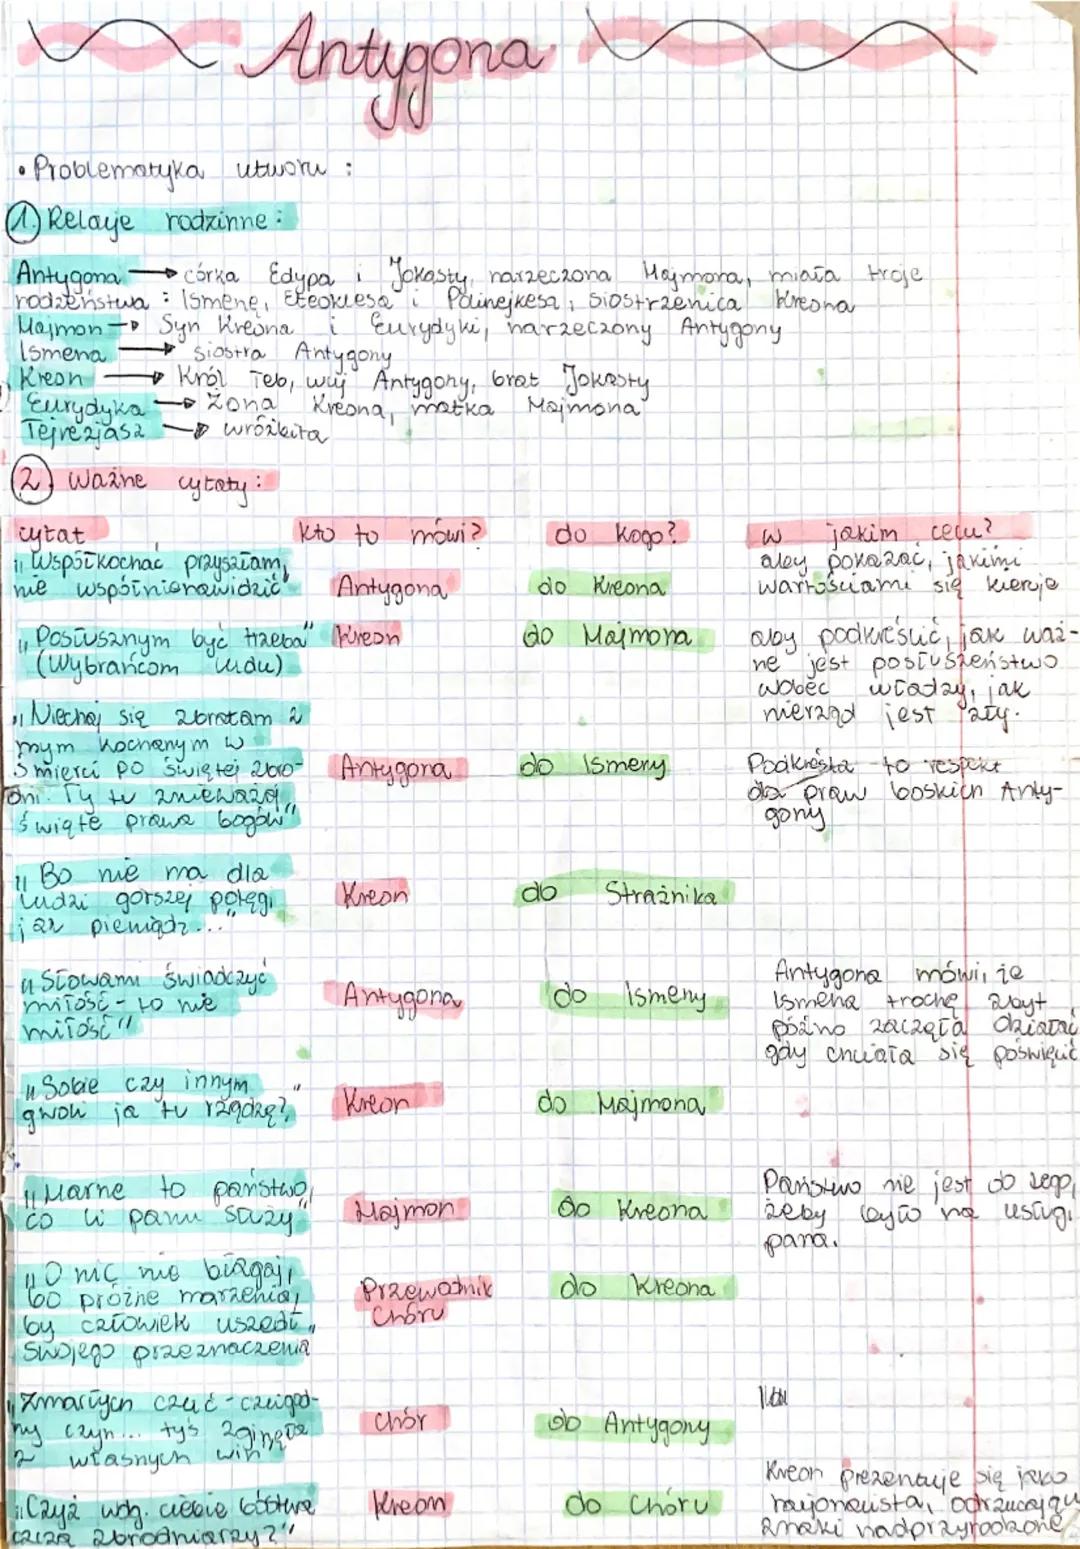 Antygona
• Problematyka utworu :
1. Relacje rodzinne :
Antygona → córka Edypa i Jokasty, narzeczona Hajmona, miała troje
rodzeństwa : Ismenę, Eteoklesa i Polinejkesa, siostrzenica Kreona
Hajmon → Syn Kreona i Eurydyki, narzeczony Antygony
Ismena → siostra Antygony
Kreon → Król Teb, wuj Antygony, brat Jokasty
Eurydyka → Żona Kreona, matka Hajmona
Tejrezjasz → wróżbita
2. Ważne cytaty :
cytat kto to mówi? do kogo? w jakim celu?
"Współkochać przyszłam, nie współnienawidzić" Antygona do Kreona aby pokazać, jakimi wartościami się kieruje
"Posłusznym być trzeba" Kreon do Hajmona aby podkreślić, jak waż-
(Wybrańcom ludu) ne jest posłuszeństwo
wobec władzy, jak
nierząd jest zły.
"Niechaj się zbratam z
mym kochanym w
śmierci po świętej zbro- Antygona do Ismeny Podkreśla to respekt
dni. Ty tu znieważaj dla praw boskich Anty-
święte prawa bogów" gony
"Bo nie ma dla
ludzi gorszej potęgi Kreon do Strażnika
jak pieniądz..."
"Słowami świadczyć Antygona mówi, że
miłość - to nie Antygona do Ismeny Ismena trochę zbyt
miłość" późno zaczęła działać
gdy chciała się poświęcić
"Sobie czy innym
gwoli ja tu rządzę?" Kreon do Hajmona
"Marne to państwo, Państwo nie jest do tego,
co li panu służy" Hajmon do Kreona żeby było na usługi
pana.
"O nic nie błagaj,
bo próżne marzenia, Przewodnik do Kreona
by człowiek uszedł Chóru
swojego przeznaczenia"
"Zmarłych czcić - czcigod-
ny czyn... tyś zginęła Chór do Antygony
z własnych win"
Kreon prezentuje się jako
"Czyż wdg. ciebie bóstwa Kreon do Chóru racjonalista, odrzucający
czczą zbrodniarzy?" znaki nadprzyrodzone